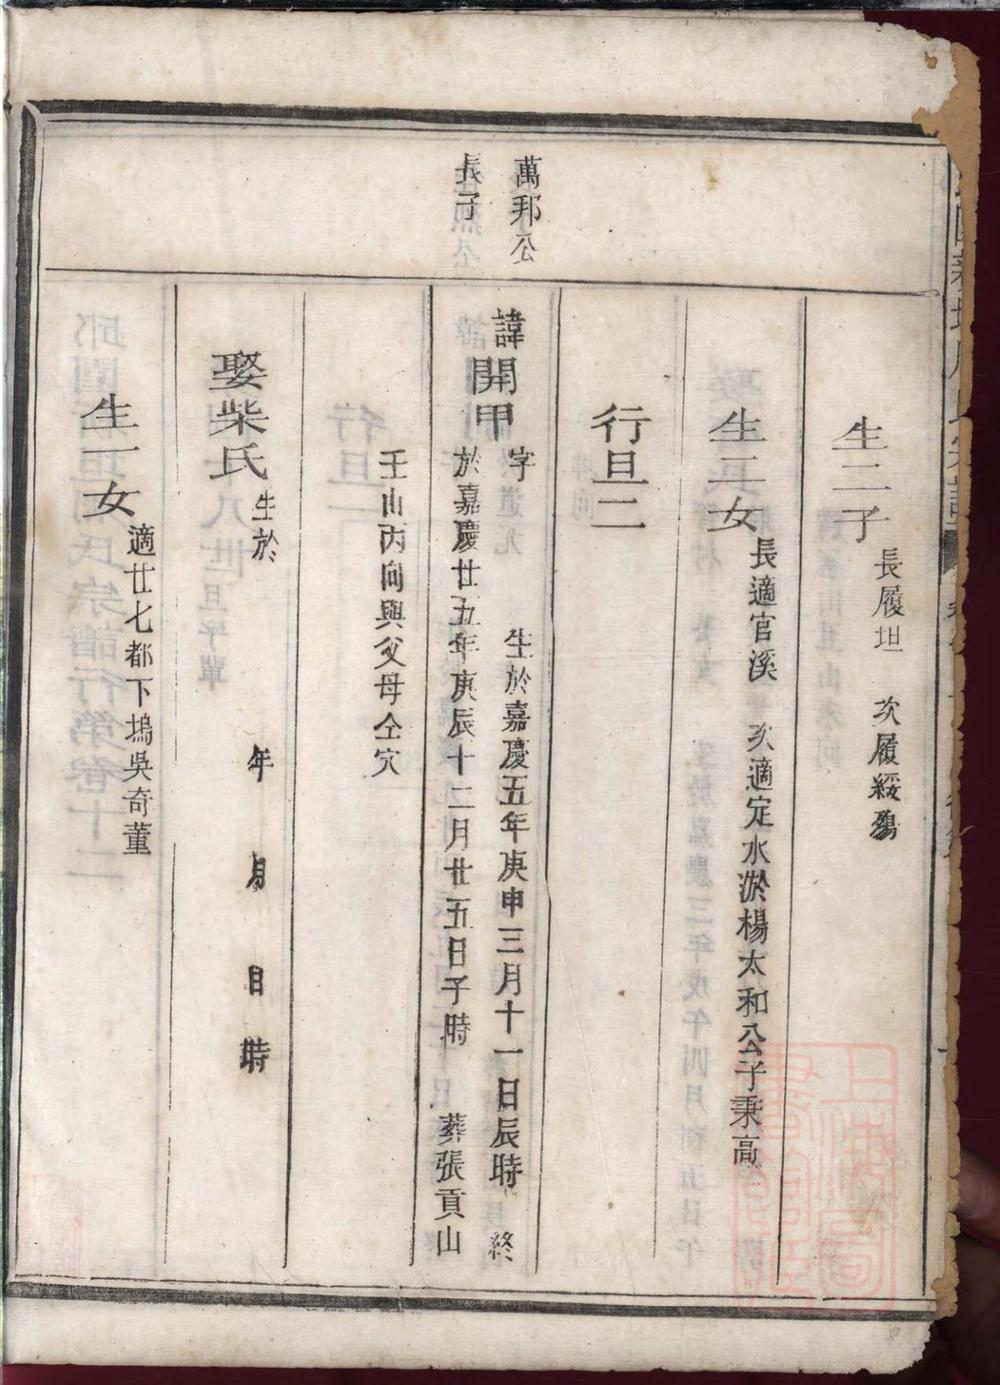 生二子
長履坦 次履綏殤
生二女
長適官溪 次適定水淤楊太和公子秉高
行旦二
萬邦公
長子
諱開甲
字 生於嘉慶五年庚申三月十一日辰時 終
於嘉慶廿五年庚辰十二月廿五日子時 葬張貢山
壬山丙向與父母仝穴
娶柴氏
生於 年 月 日 時
生一女
適廿七都下塢吳奇董